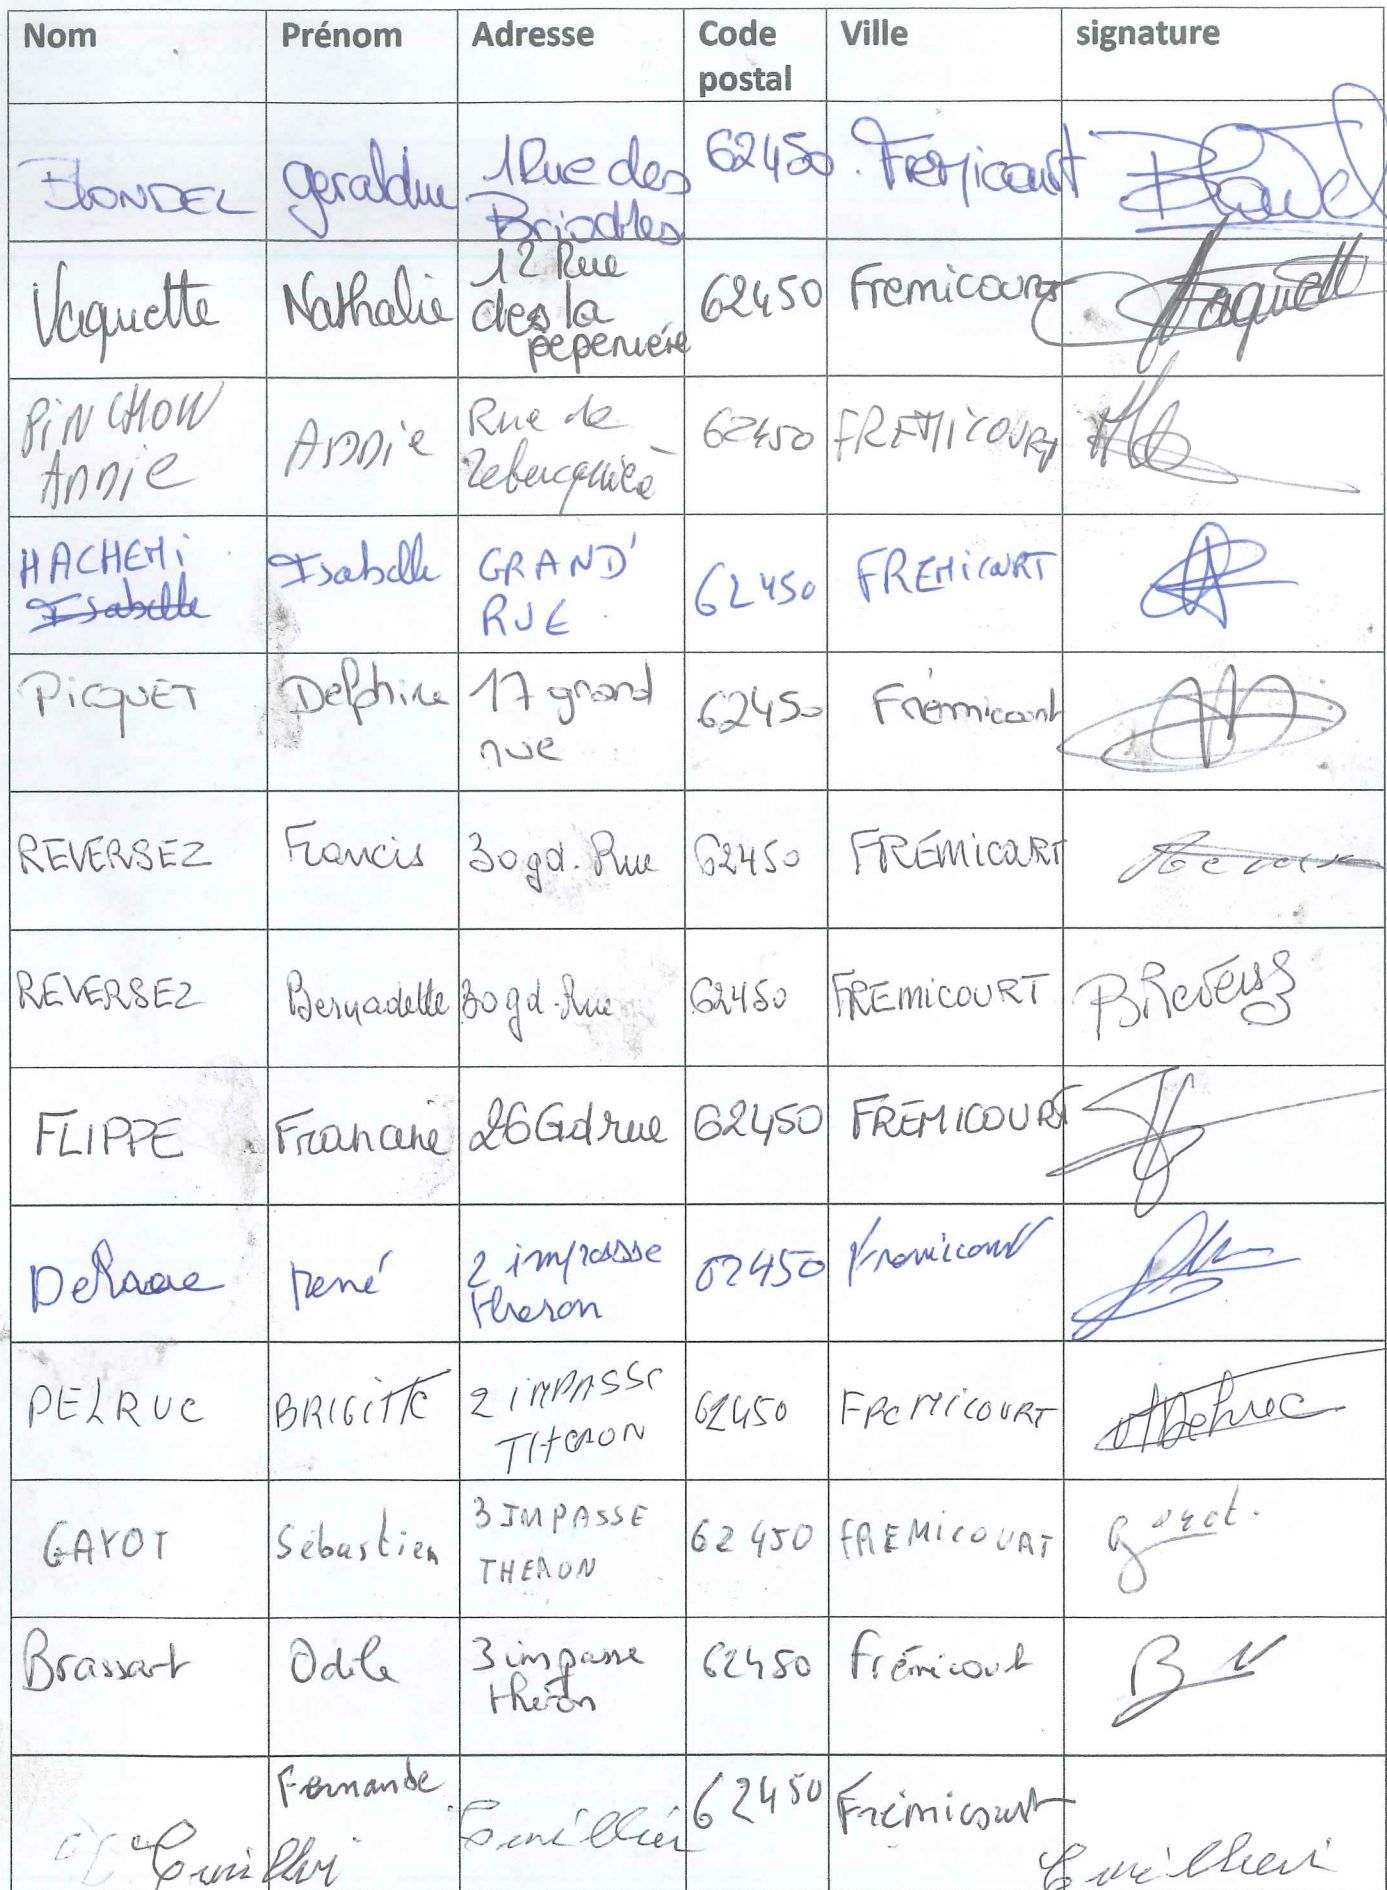 Nom Prénom Adresse Code postal Ville signature
BLONDEL Geraldine 1 Rue des Briottes 62450 Fremicourt Blondel
Vaquette Nathalie 12 Rue des la pepenière 62450 Fremicourt Vaquette
PINCHON Annie Annie Rue de 62450 FREMICOURT
HACHEMI Isabelle Isabelle GRAND' RUE 62450 FREMICOURT
PICQUET Delphine 17 grand rue 62450 Frémicourt
REVERSEZ Francis 30 gd. Rue 62450 FREMICOURT
REVERSEZ Bernadette 30 gd. Rue 62450 FREMICOURT BReversez
FLIPPE Francine 26 Gd rue 62450 FREMICOURT
René 2 impasse Theron 62450 Fremicourt
DELRUE BRIGITTE 2 IMPASSE THERON 62450 FREMICOURT
GAYOT Sébastien 3 IMPASSE THERON 62450 FREMICOURT gayot.
Brassart Odile 3 impasse théron 62450 Frémicourt B
Fernande 62450 Frémicourt